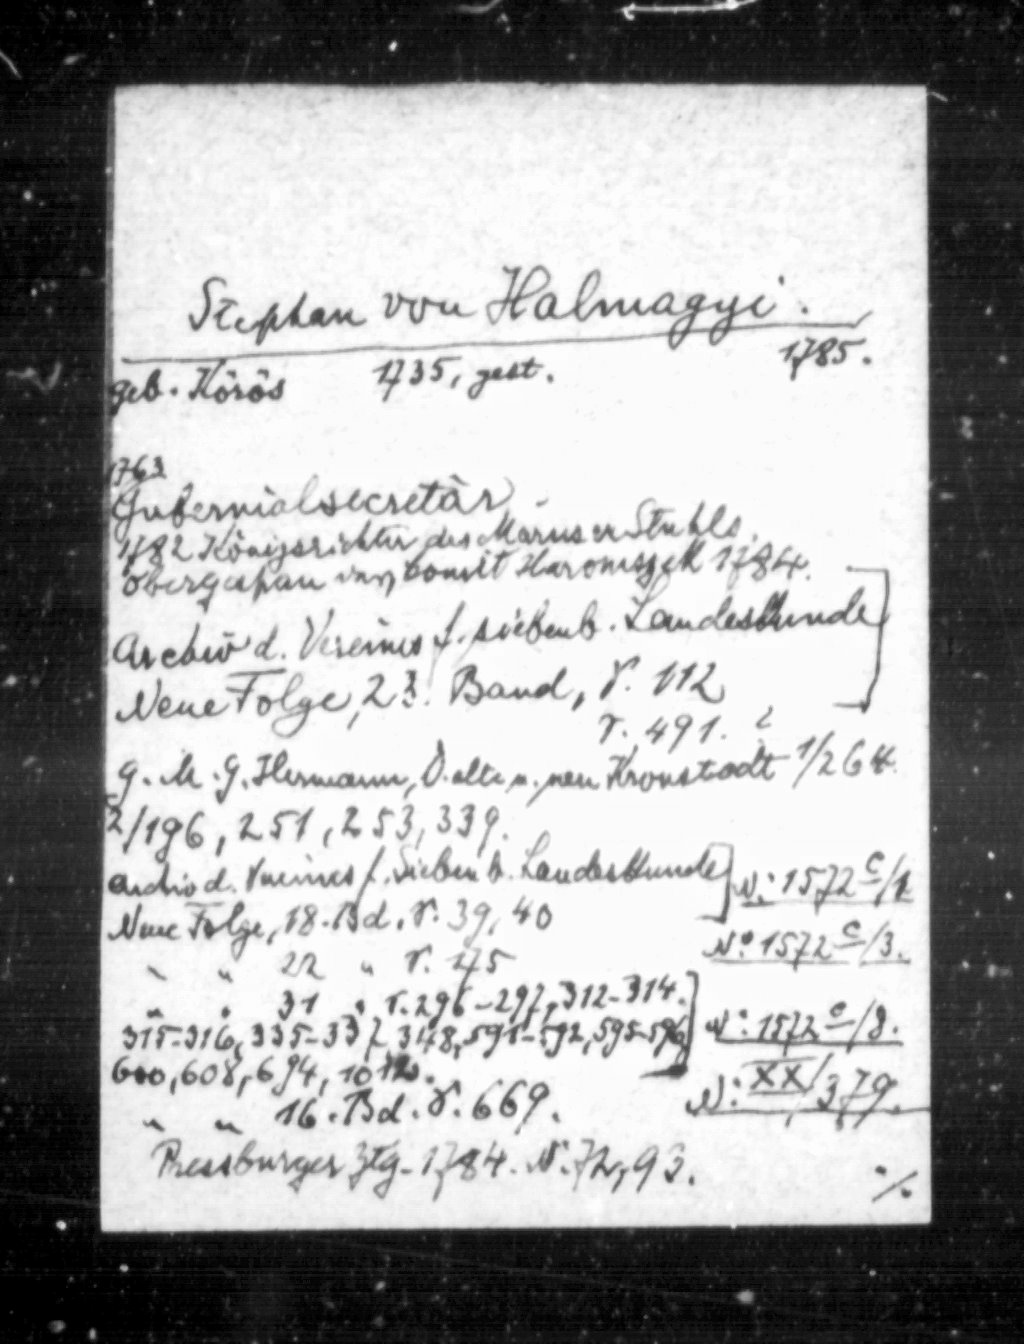 Stephan von Halmagyi.
geb. Körös 1735, gest. 1785.
1763
Gubernialsecretär
1782 Königsrichter des Maruser Stuhls.
Obergespan von Comit Haromszek 1784.
Archiv d. Vereines f. siebenb. Landeskunde
Neue Folge, 23. Band, S. 112
S. 491.
G. M. G. Hermann, D. alte u. neue Kronstadt 1/264.
2/196, 251, 253, 339.
Archiv d. Vereines f. Siebenb. Landeskunde N: 1572 c/1
Neue Folge, 18. Bd. S. 39, 40
N: 1572 c/3.
" " 22 " S. 175
" " 31 " S. 296-297, 312-314.
315-316, 335-337, 591-592, 595-596 N: 1572 c/8.
600, 608, 694,
N: XX/379.
" " 16. Bd. S. 669.
Pressburger Ztg. 1784. N. 72, 93.
./.